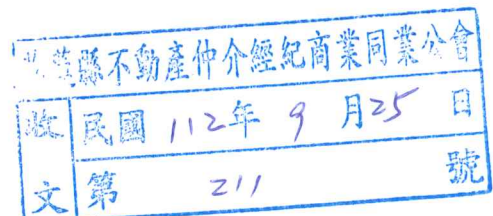 縣不動產仲介經紀商業同業公會
收 民國 112年 9 月25 日
文 第 211 號